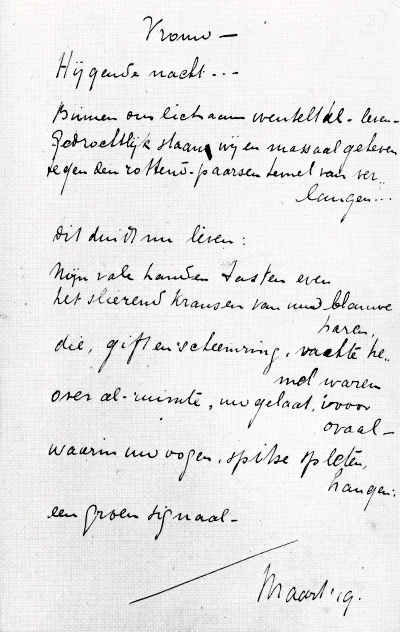 Vrouw —
Hijgende nacht...
Binnen ons lichaam wentelt al-leven-
Gedrochtlijk staan wij en massaal geheven
tegen den rottend-paarsen hemel van ver
langen!...
dit duidt nu leven:
Mijn vale handen tasten even
het slierend kransen van uw blauwe
haren,
die, gift en scheemring, vachte he-
mel waren
over al-ruimte, uw gelaat, ivoor
ovaal—
waarin uw oogen, spitse spleten,
hangen:
een groen signaal—
Maart '19.